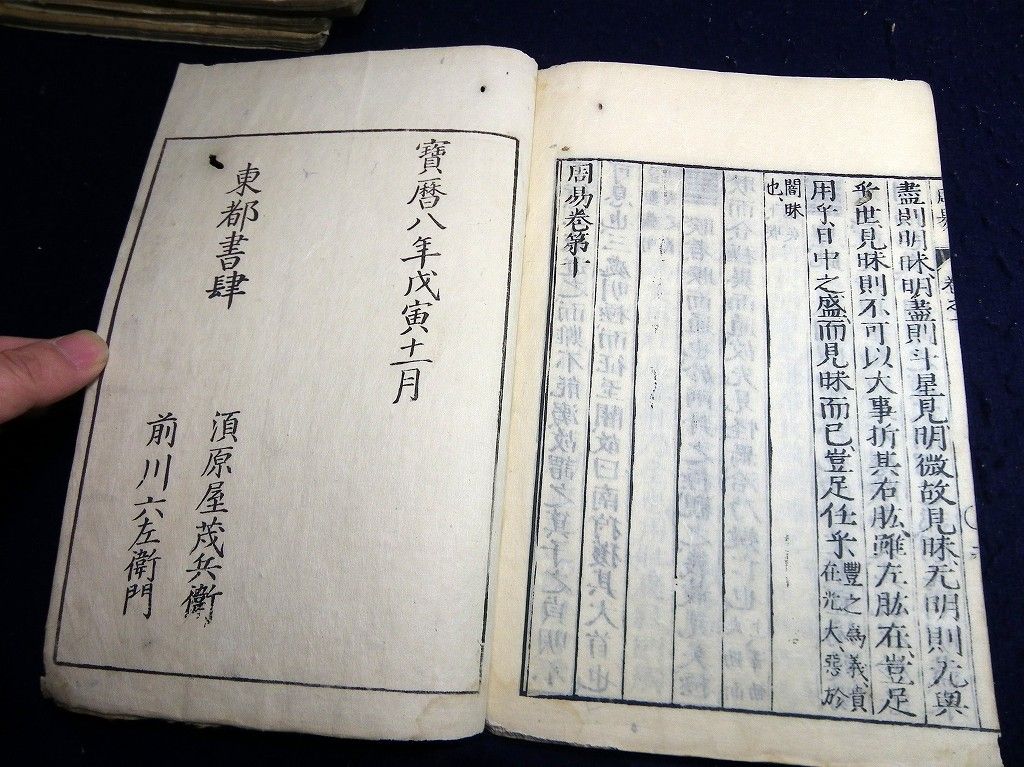 盡則明昧明盡則斗星見明微故見昧无明則无與
乎世見昧則不可以大事折其右肱雖左肱在豈足
用乎日中之盛而見昧而已豈足任乎
豐之為義貴
在光大惡於
闇昧
也
周易卷第十
寶暦八年戊寅十一月
東都書肆
須原屋茂兵衛
前川六左衛門